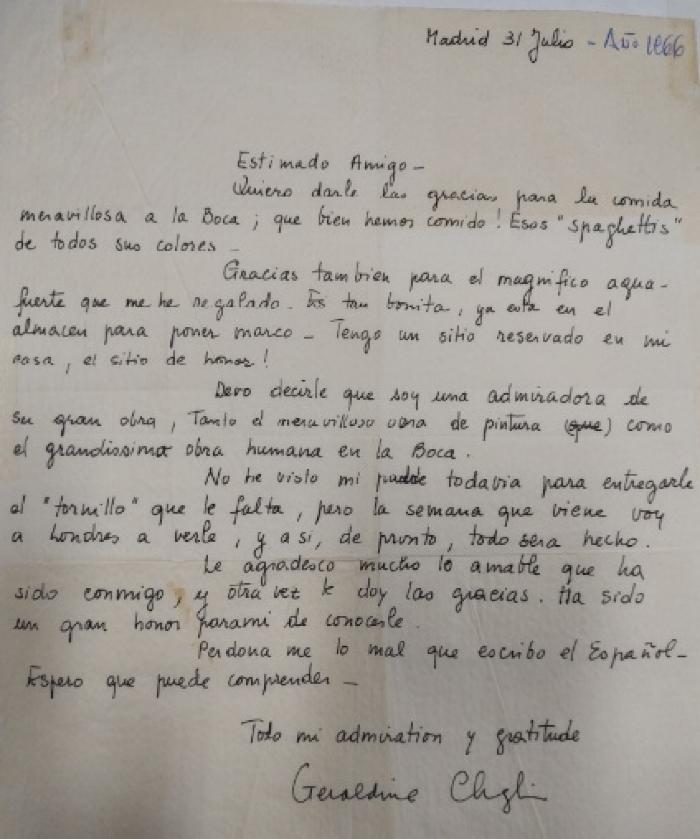 Madrid 31 Julio - Año 1966
Estimado Amigo -
Quiero darle las gracias para la comida
meravillosa a la Boca ; que bien hemos comido ! Esos "spaghettis"
de todos sus colores -
Gracias tambien para el magnifico aqua-
fuerte que me he regalado - Es tan bonita, ya esta en el
almacen para poner marco - Tengo un sitio reservado en mi
casa, el sitio de honor !
Devo decirle que soy una admiradora de
su gran obra, Tanto el meravilloso obra de pintura (que) como
el grandissima obra humana en la Boca .
No he visto mi padre todavia para entregarle
el "tornillo" que le falta, pero la semana que viene voy
a Londres a verle, y asi, de pronto, todo sera hecho.
Le agradesco mucho lo amable que ha
sido conmigo, y otra vez le doy las gracias. Ha sido
un gran honor parami de conocerle.
Perdona me lo mal que escribo el Español -
Espero que puede comprender -
Todo mi admiration y gratitude
Geraldine